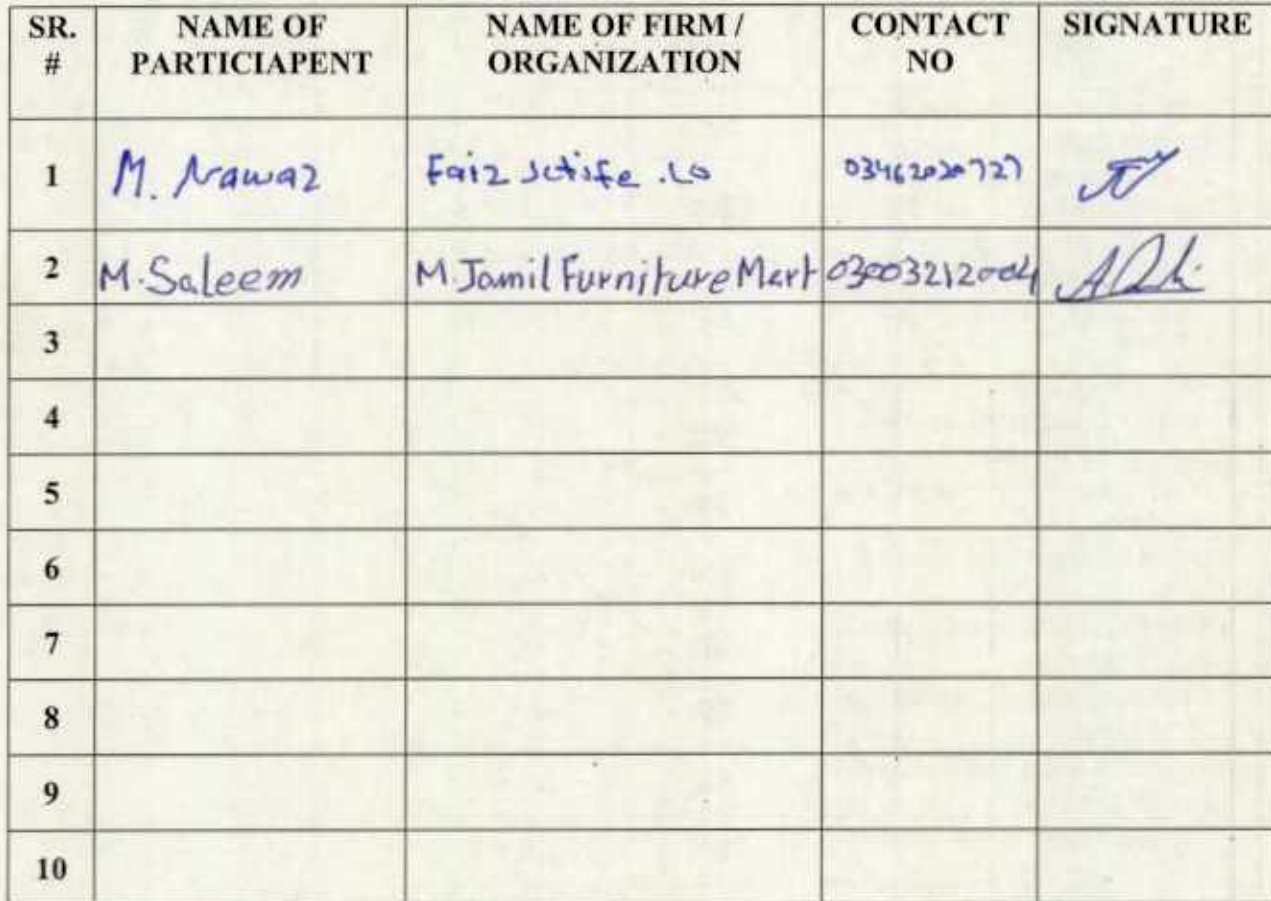 SR. # NAME OF PARTICIAPENT NAME OF FIRM / ORGANIZATION CONTACT NO SIGNATURE
1 M. Nawaz Faiz 03462020727
2 M. Saleem M. Jamil Furniture Mart 03003212004
3
4
5
6
7
8
9
10